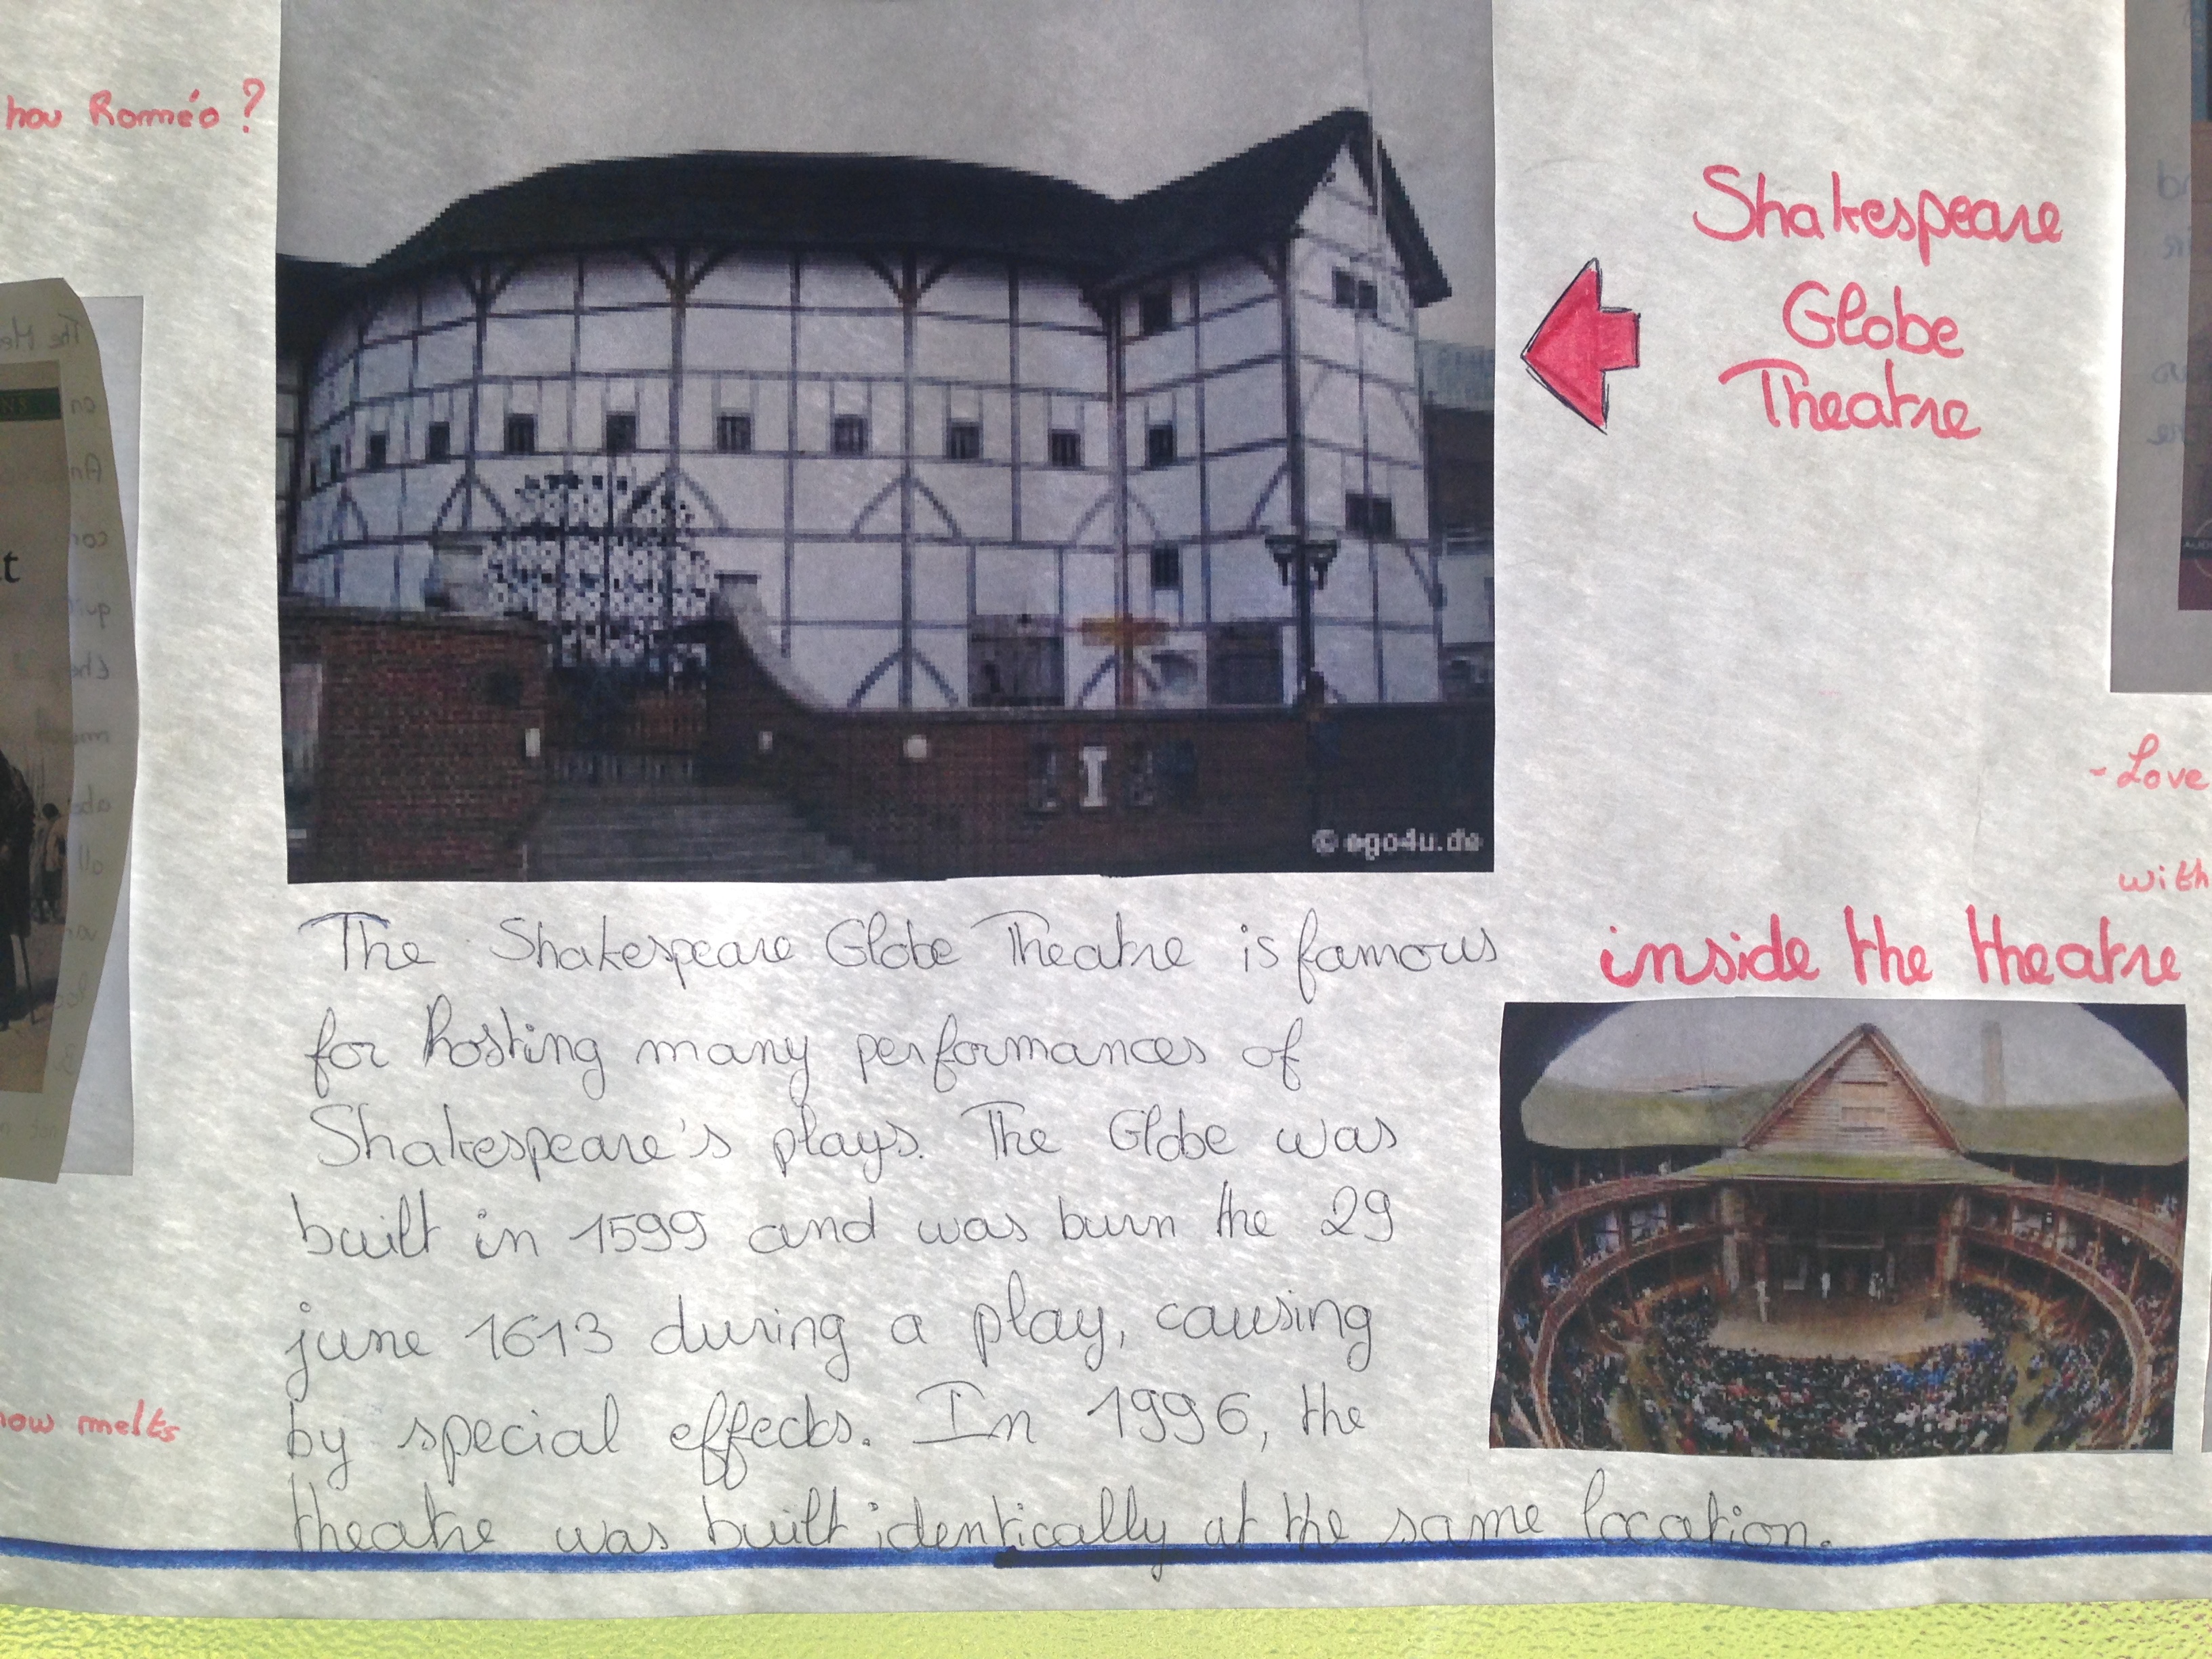 hou Roméo ?
Shakespeare
Globe
Theatre
© ego4u.de
- Love
with
inside the theatre
The Shakespeare Globe Theatre is famous
for hosting many performances of
Shakespeare's plays. The Globe was
built in 1599 and was burn the 29
june 1613 during a play, causing
by special effects. In 1996, the
theatre was built identically at the same location.
now melts